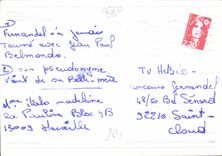 AGED
D
Fernandel n'a jamais
Tourné avec Jean Paul
Belmondo.
E son pseudonyme
Vient de sa Belle-mère
Mme Italo madeleine
La Pauline Bloc 9B
13009 Marseille
TV HEBDO
concours fernandel
48/50 Bd Sénard
92210 Saint-
Cloud